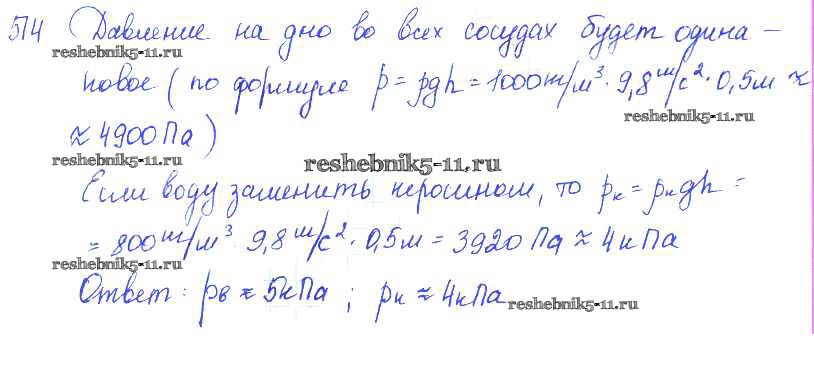 514 Давление на дно во всех сосудах будет одина-
reshebnik5-11.ru
ковое (по формуле p = ρgh = 1000 кг/м³ · 9,8 м/с² · 0,5 м ≈
reshebnik5-11.ru
≈ 4900 Па)
reshebnik5-11.ru
reshebnik5-11.ru
Если воду заменить керосином, то pк = ρкgh =
= 800 кг/м³ · 9,8 м/с² · 0,5 м = 3920 Па ≈ 4 кПа
reshebnik5-11.ru
Ответ: pв ≈ 5 кПа; pк ≈ 4 кПа
reshebnik5-11.ru